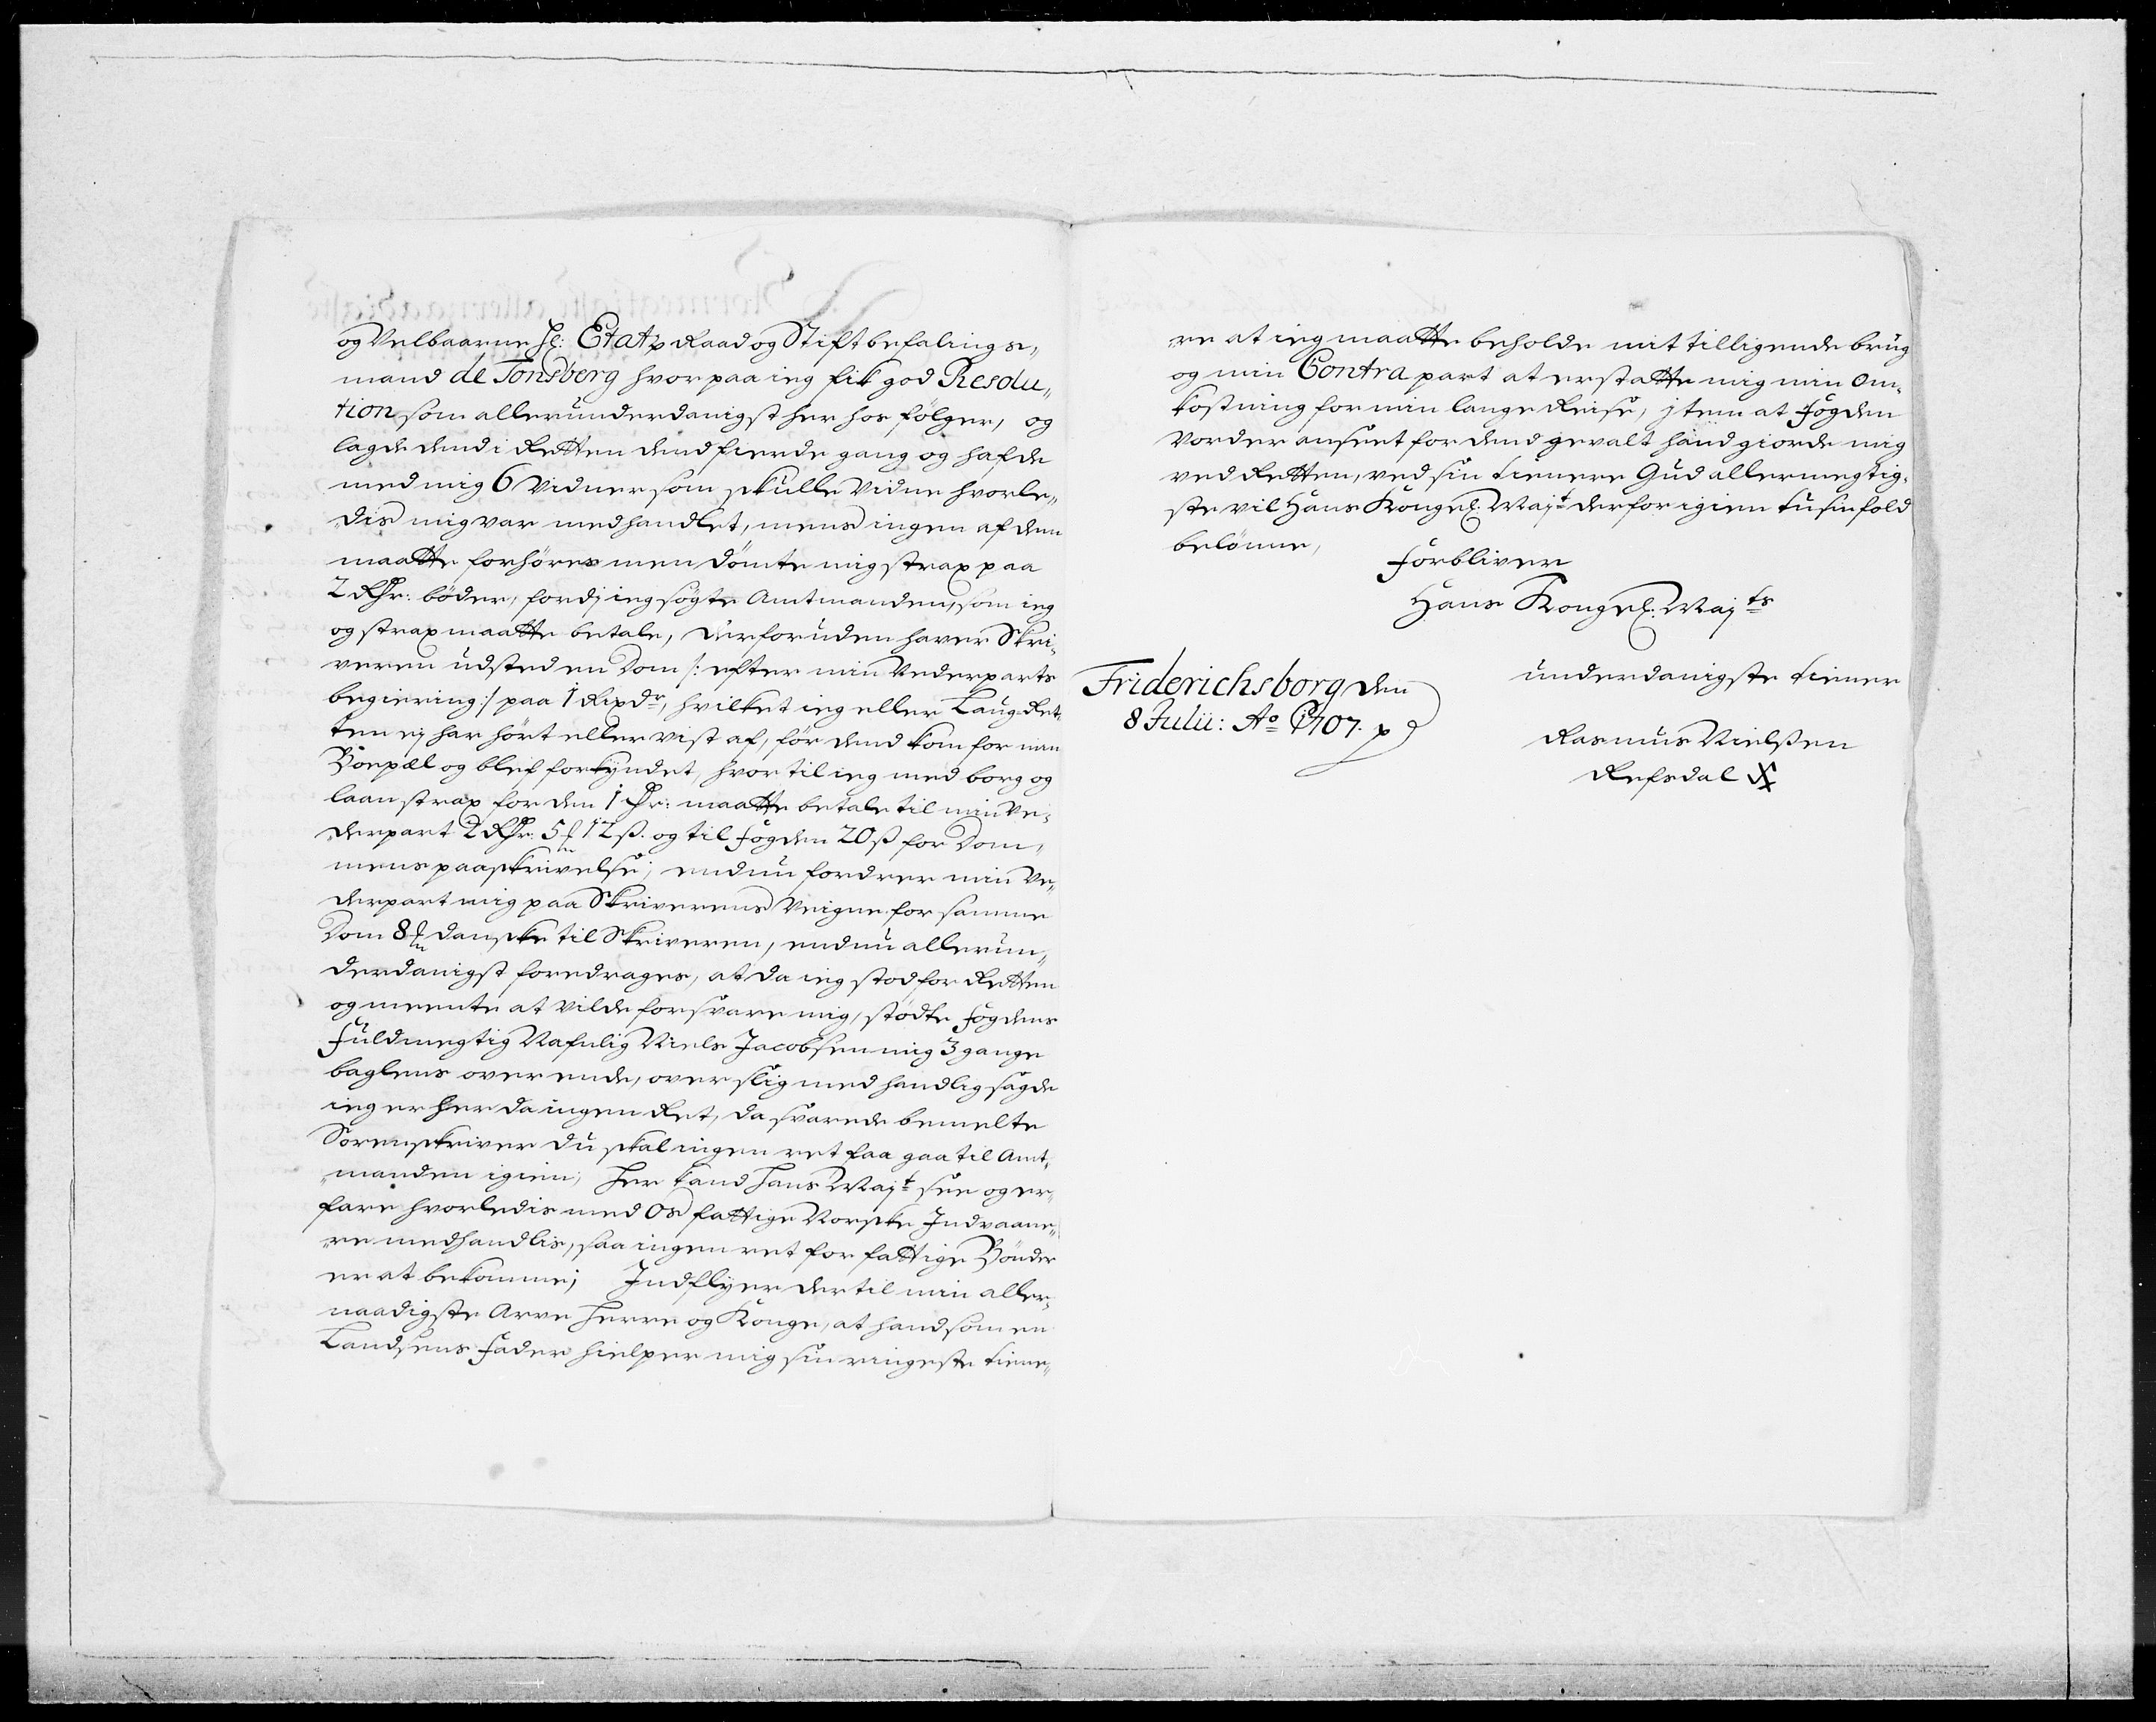 og Velbaarne Hl: Etatz Raad og Stiftbefalings,,
mand de Tonsberg hvorpaa ieg fik god Resolu,,
tion som allerunderdanigst her hos fölger, og
lagde dend i Retten dend fierde gang og hafde
med mig 6 Vidner som skulle Vidne hvorle,,
dis mig var medhandlet, mens ingen af dem
maatte forhöres men dömte mig strax paa
2 Rdr: böder, fordj ieg sögte Amtmanden, som ieg
og strax maatte betale, derforuden haver Skri,,
veren udsted en Dom /: efter min Vederparts
begiering :/ paa 1 Rixdr, hvilket ieg eller Laug Ret,,
ten ej har hört eller vist af, för dend kom for min
Boepæl og blef forkyndet, hvortil ieg med borg og
laan strax for den 1 Dr: maatte betale til min Ve,,
derpart 2 Rdr: 5 ℳ 12 ß. og til fogden 20 ß for Dom,,
mens paaskrivelse; endnu fordrer min Ve,,
derpart mig paa Skriverens Veigne for samme
Dom 8 ℳ danske til Skriveren, endnu allerun,,
derdanigst foredrages, at da ieg stod for Retten
og meente at vilde forsvare mig, stödte fogdens
fuldmegtig Nafnlig Niels Jacobsen mig 3 gange
baglens over ende, over slig medhandlig sagde
ieg er her da ingen Ret, da svarede bemelte
Sorenskriver du skal ingen ret faa gaa til Amt,,
manden igien, her kand hans Majt see og er,,
fare hvorledis med Os fattige Norske Indvaane,,
re medhandlis, saa ingen ret for fattige Bönder
er at bekomme; Indflyer dertil min aller,,
naadigste Arve Herre og Konge, at hand som en
Landsens fader hielper mig sin ringeste tiene,,
re at ieg maatte beholde mit tilligende brug
og min Contra part at erstatte mig min Om,,
kostning for min lange Reise, jtem at fogden
Vorder anseet for dend gevalt hand giorde mig
ved Retten, ved sin tienere Gud allermegtig,,
ste vil Hans Kongel: Majt derfor igien tusinfold
belönne,
forbliver
Hans Kongel: Majts
underdanigste tiener
Friderichsborg den
8 Julii: Ao 1707. p
Rasmus Nielßen
Refsdal